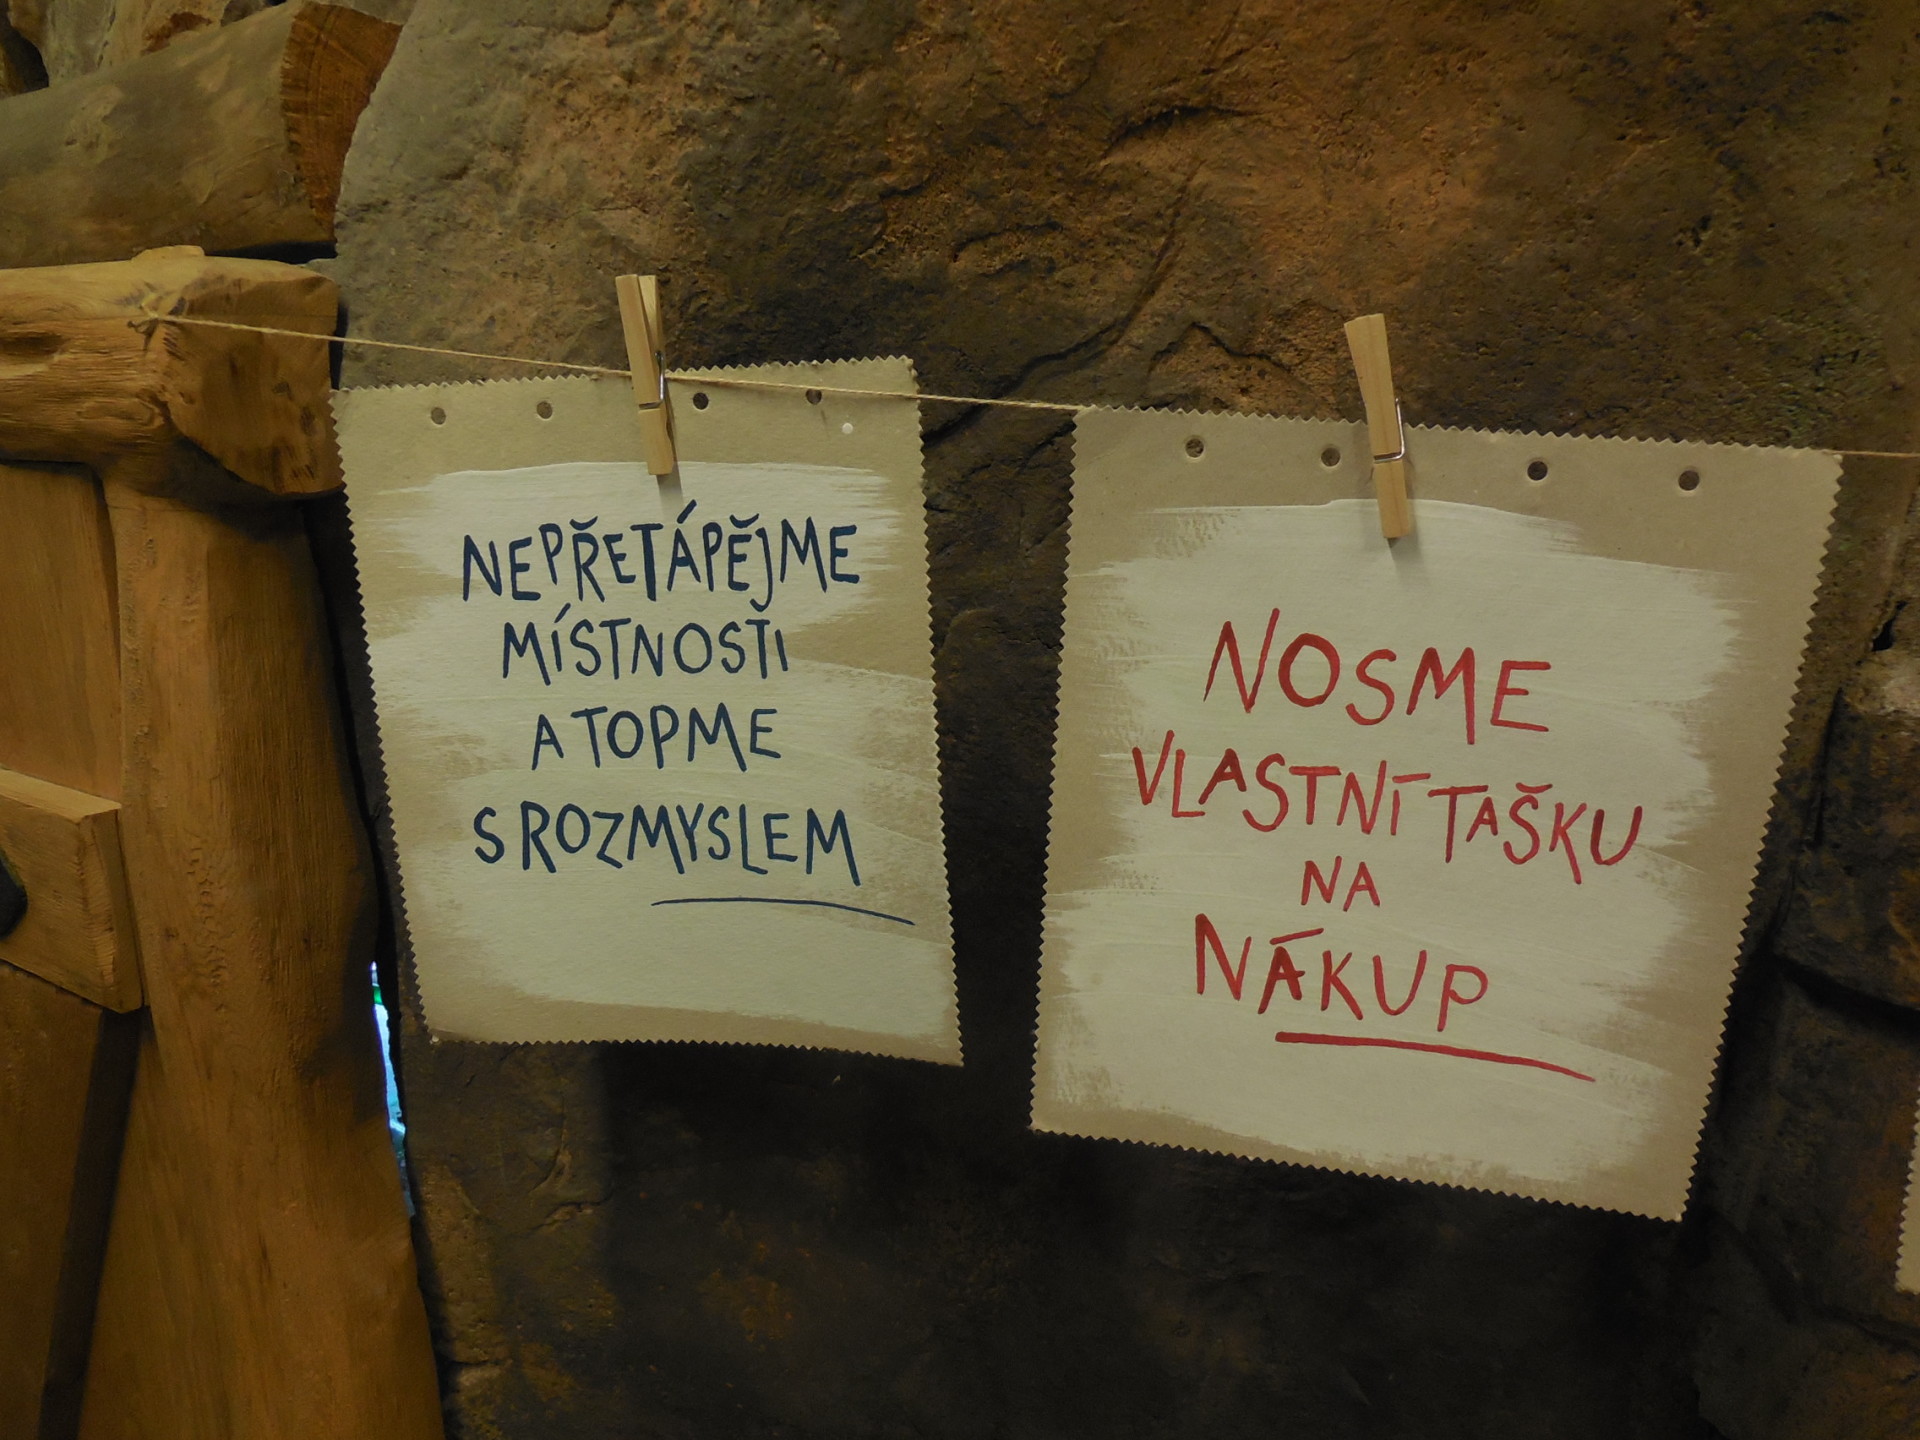 NEPŘETÁPĚJME
MÍSTNOSTI
A TOPME
S ROZMYSLEM
NOSME
VLASTNÍ TAŠKU
NA
NÁKUP